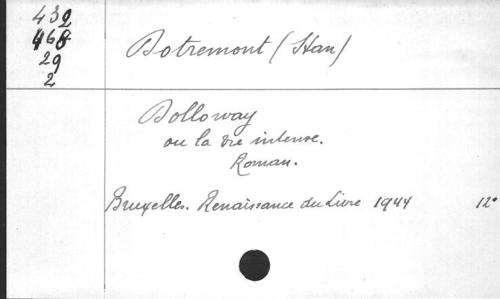 432
468
29
2
Dotremont (Stan)
Dolloway
ou la vie intense.
Roman.
Bruxelles. Renaissance du Livre 1944 12°